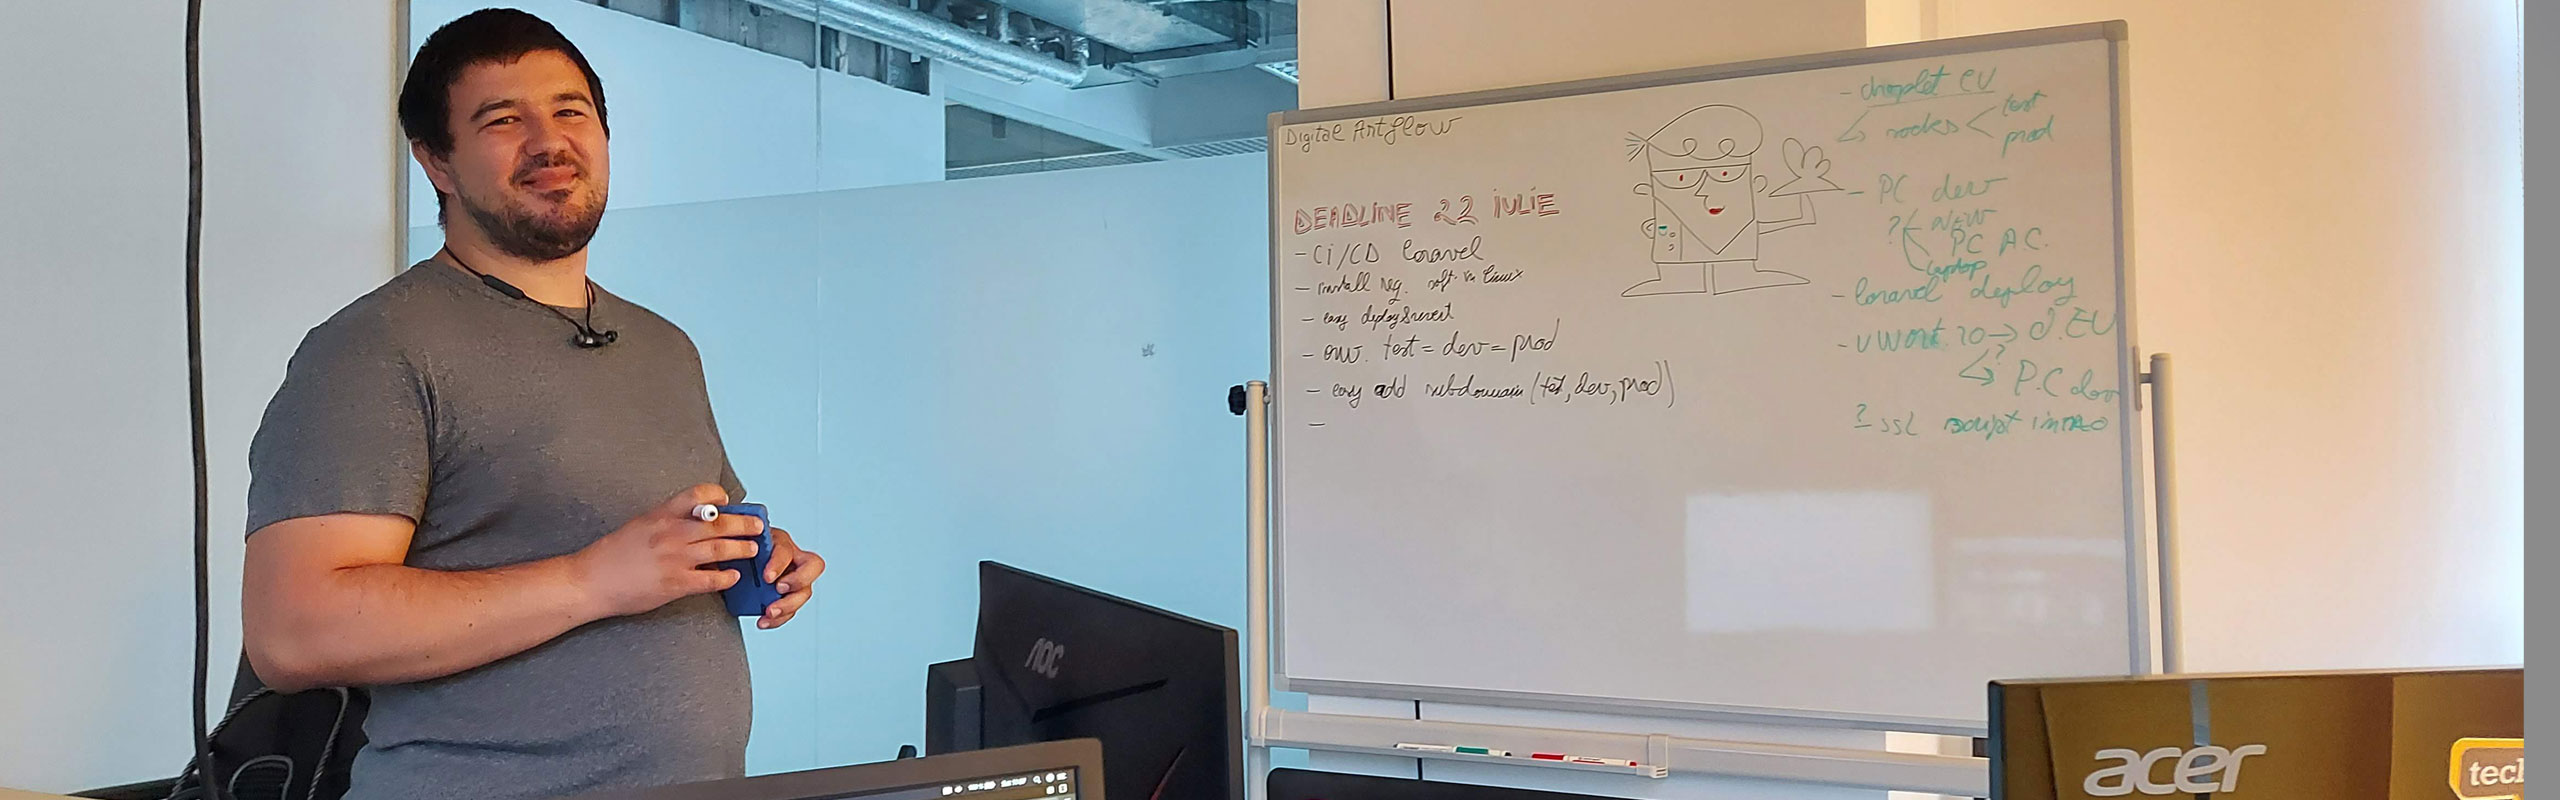 Digital Artflow
DEADLINE 22 IULIE
- Ci/CD laravel
- install req. soft. in linux
- easy deploy&revert
- test = dev = prod
- easy add subdomain (test, dev, prod)
-
- droplet EU
nodes < test
prod
- PC dev
? NEW
PC AC.
laptop
- laravel deploy
? P.C dev
? SSL script
AOC
acer
tec